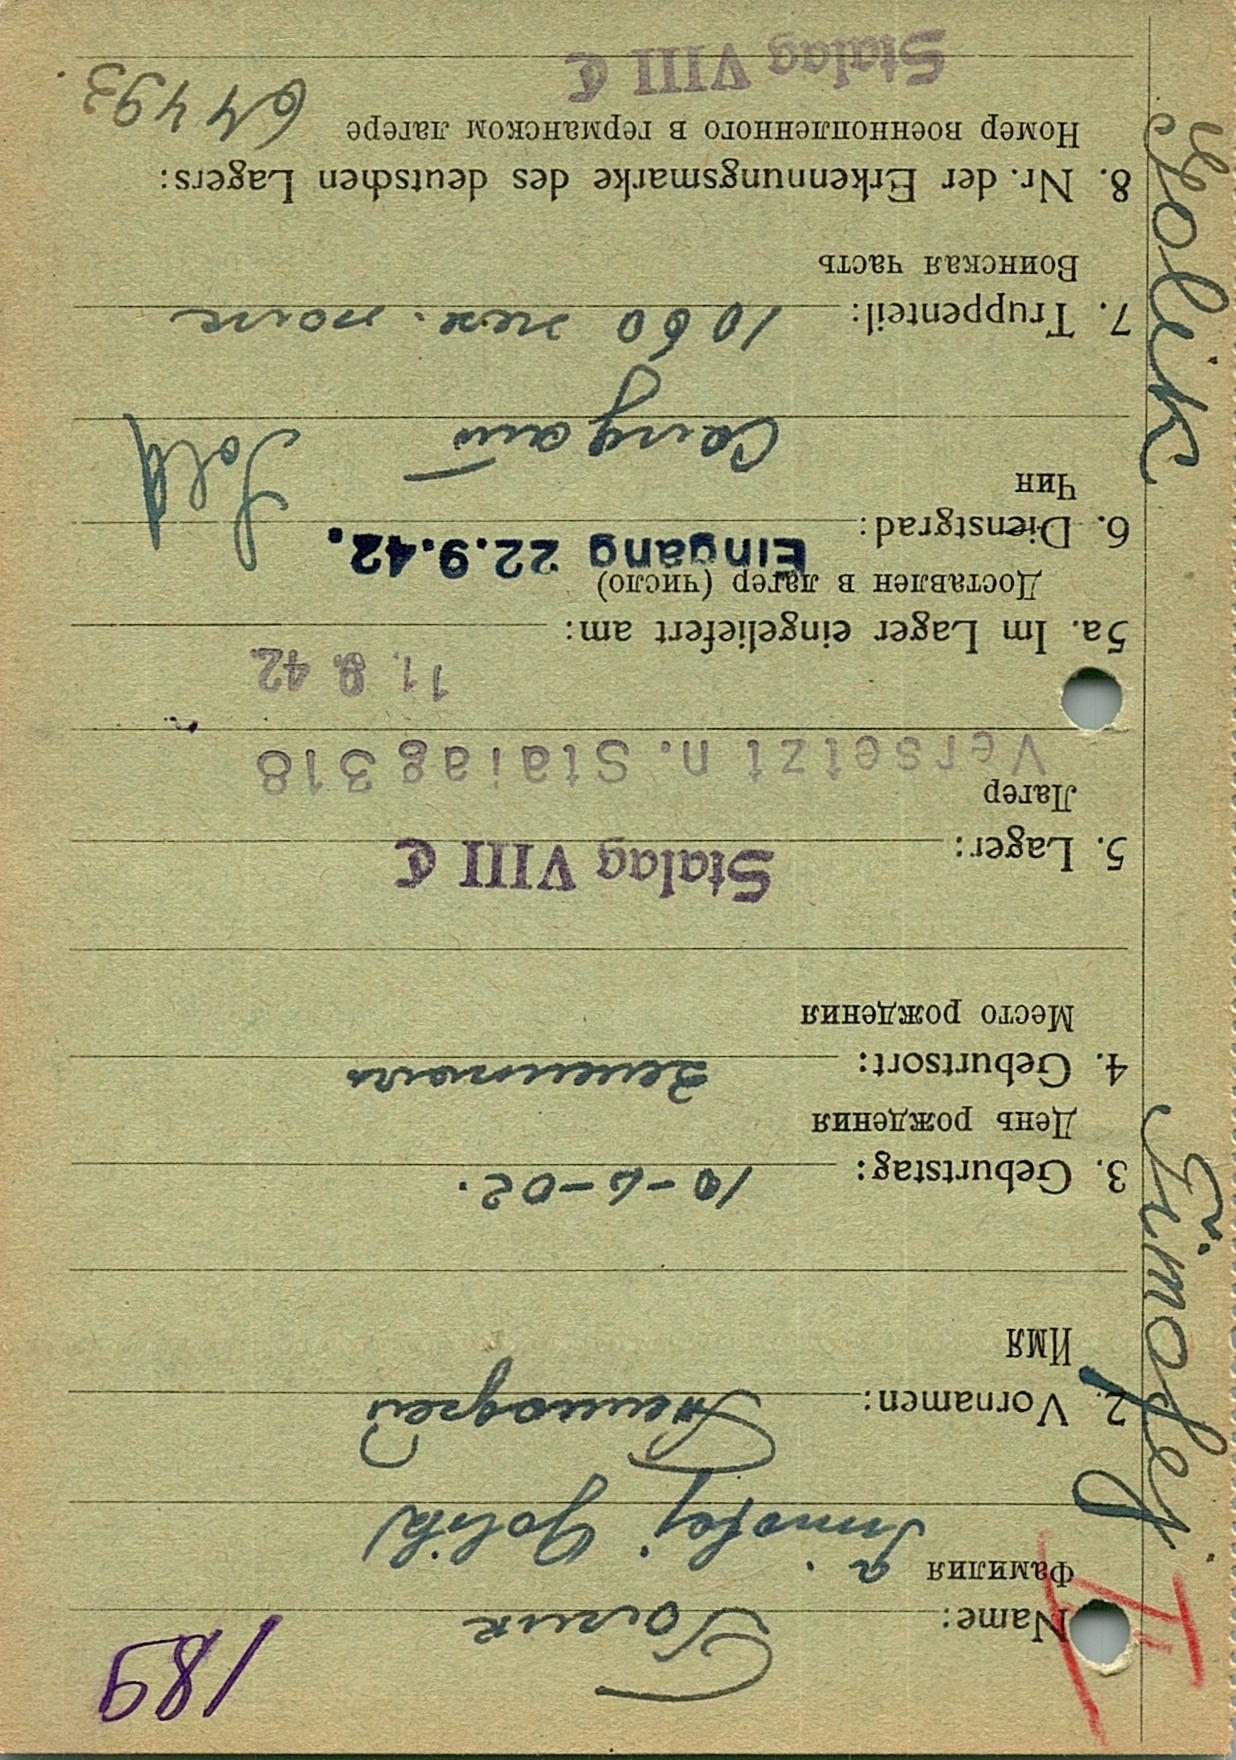 189
Name: Голик
Фамилия
Timofej Golik
2. Vornamen: Тимофей
Имя
3. Geburtstag: 10-6-02.
День рождения
4. Geburtsort:
Место рождения
Stalag VIII C
5. Lager:
Лагер
Versetzt n. Stalag 318
11. 9. 42.
5a. Im Lager eingeliefert am:
Доставлен в лагер (число)
Eingang 22.9.42.
6. Dienstgrad: Sold
Чин
7. Truppenteil: 1060
Воинская часть
8. Nr. der Erkennungsmarke des deutschen Lagers:
Номер военнопленного в германском лагере 64493
Stalag VIII C
Golik Timofej
II